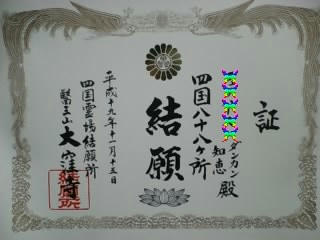 証
ダンカン
知恵 殿
四国八十八ヶ所
結願
平成十九年十一月十五日
四国霊場結願所
醫王山 大窪寺